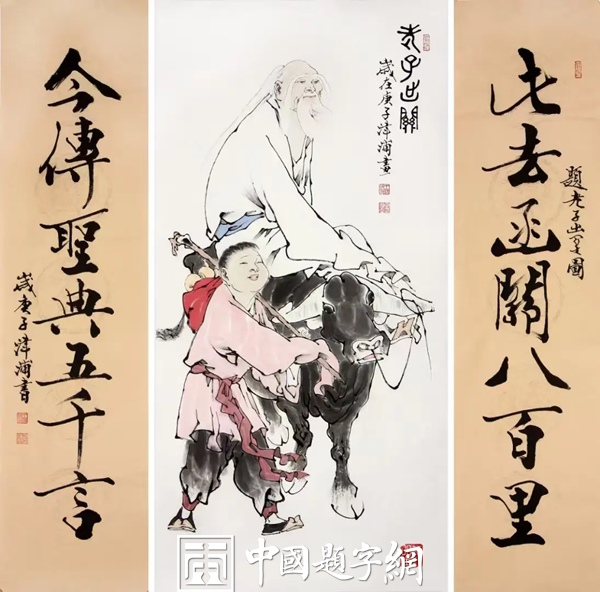 此去函關八百里
題老子出關圖
老子出關
歲在庚子津浦畫
今傳聖典五千言
歲庚子津浦書
中國題字網